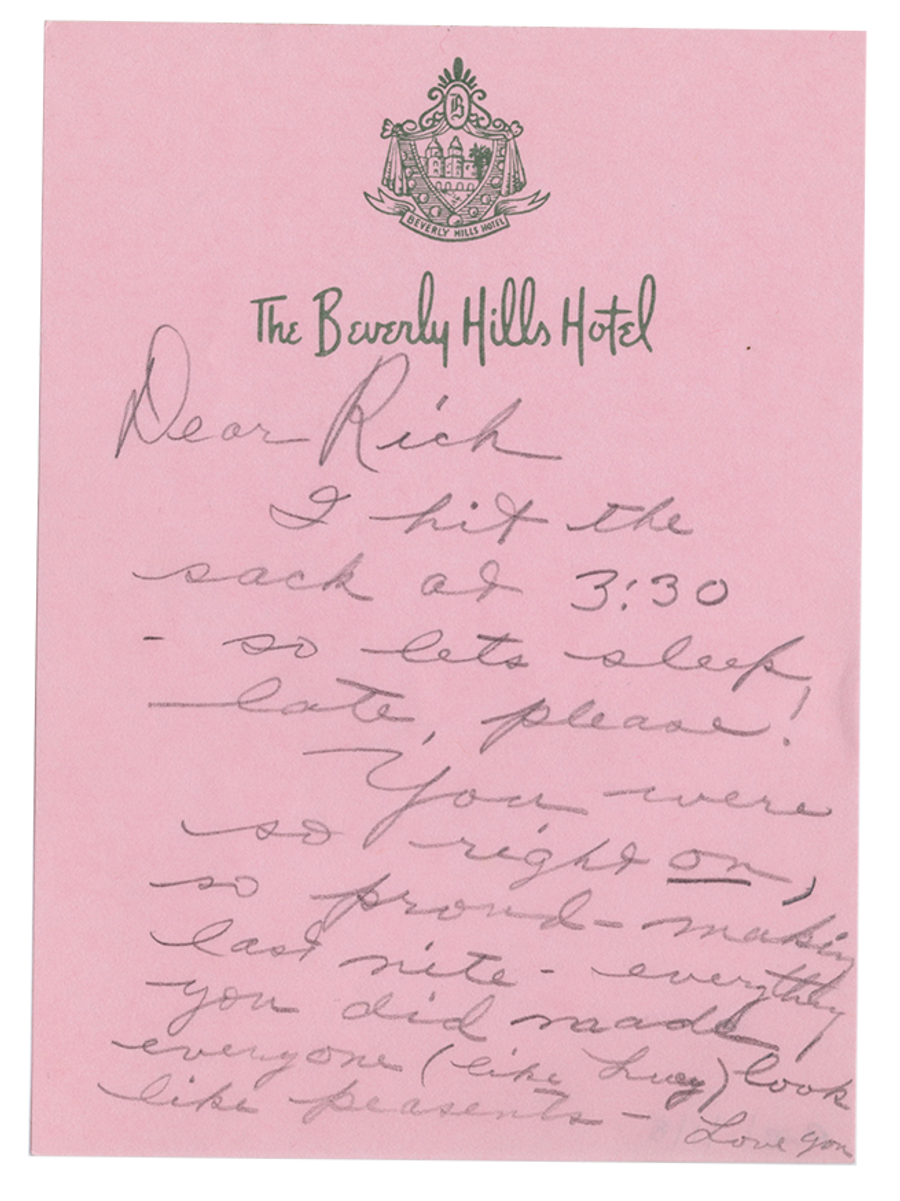 B
BEVERLY HILLS HOTEL
The Beverly Hills Hotel
Dear Rich
I hit the
sack at 3:30
- so lets sleep
late, please!
You were
so right on,
so proud-making
last nite - everything
you did made
everyone (like Lucy) look
like peasents -
Love you